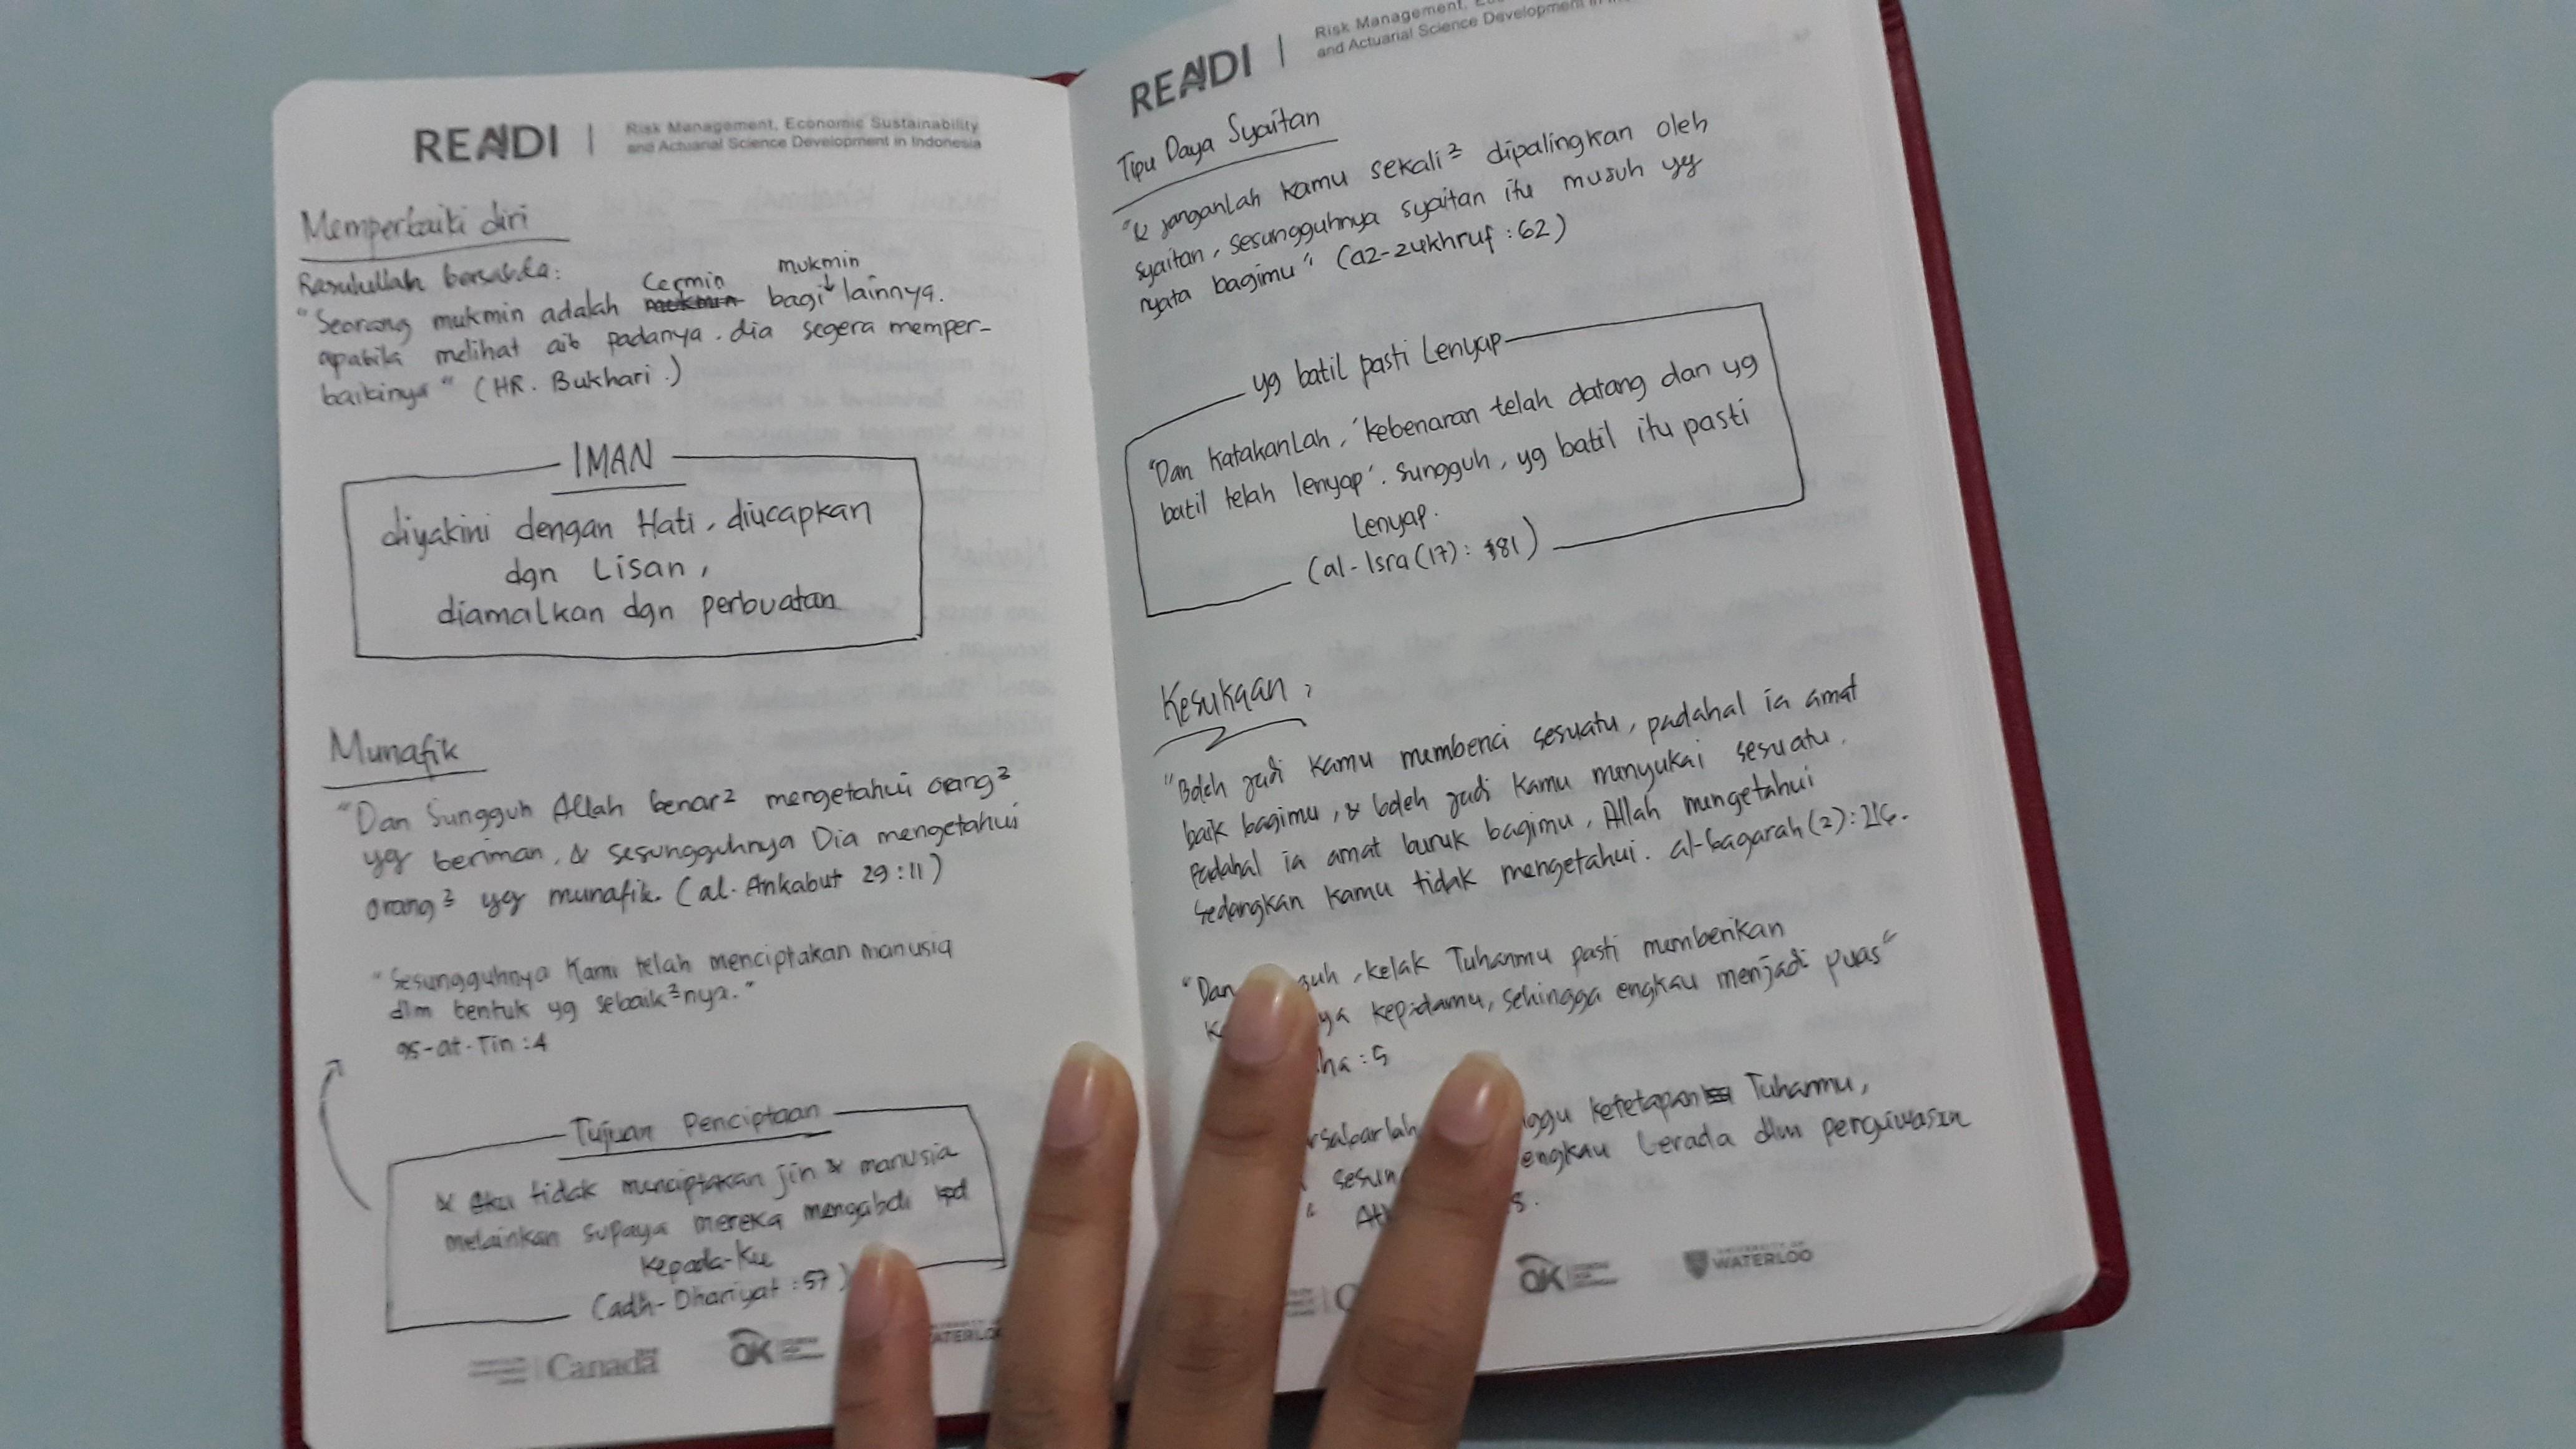 READI | Risk Management, Economic Sustainability
and Actuarial Science Development in Indonesia
Memperbaiki diri
Rasulullah bersabda:
"Seorang mukmin adalah cermin bagi mukmin lainnya.
apabila melihat aib padanya. dia segera memper-
baikinya" (HR. Bukhari.)
IMAN
diyakini dengan Hati, diucapkan
dgn Lisan,
diamalkan dgn perbuatan
Munafik
"Dan Sungguh Allah benar² mengetahui orang²
yg beriman, & sesungguhnya Dia mengetahui
orang² yg munafik. (al-Ankabut 29:11)
"Sesungguhnya Kami telah menciptakan manusia
dlm bentuk yg sebaik²nya."
95-at-Tin:4
Tujuan Penciptaan
& Aku tidak menciptakan jin & manusia
melainkan supaya mereka mengabdi kpd
kepada-Ku
(adh-Dhariyat:57)
Canada
OK
READI | Risk Management,
and Actuarial Science Development in
Tipu Daya Syaitan
"& janganlah kamu sekali² dipalingkan oleh
syaitan, sesungguhnya syaitan itu musuh yg
nyata bagimu" (az-zukhruf:62)
yg batil pasti Lenyap
"Dan katakanLah, 'kebenaran telah datang dan yg
batil telah lenyap'. sungguh, yg batil itu pasti
Lenyap.
(al-Isra(17): 81)
Kesukaan,
"Boleh jadi kamu membenci sesuatu, padahal ia amat
baik bagimu, & boleh jadi kamu menyukai sesuatu.
Padahal ia amat buruk bagimu, Allah mengetahui
sedangkan kamu tidak mengetahui. al-baqarah(2):216.
"Dan , kelak Tuhanmu pasti memberikan
kepadamu, sehingga engkau menjadi puas"
:5
ketetapan Tuhanmu,
engkau berada dlm pengawasan
OK
UNIVERSITY OF
WATERLOO